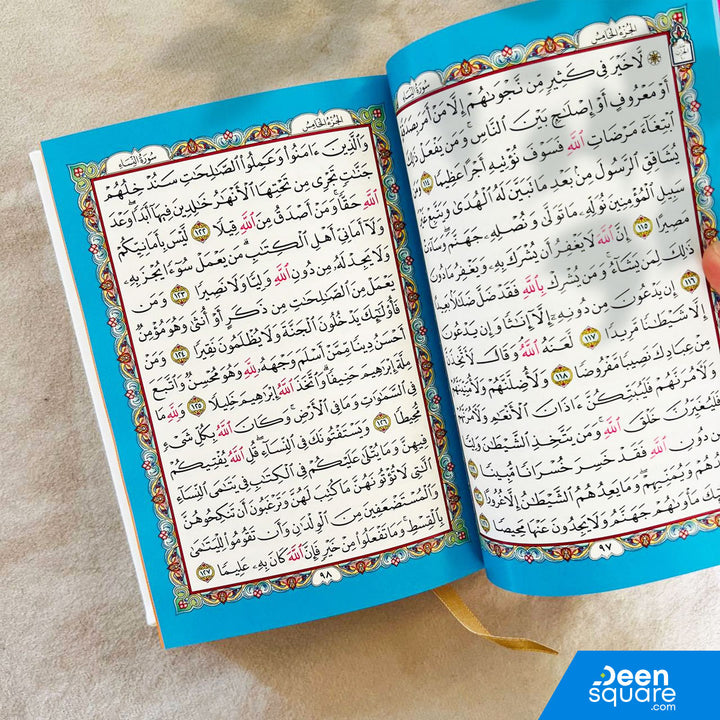 سُورَةُ النِّسَاءِ
الجُزْءُ الخَامِسُ
۞ لَّا خَيْرَ فِي كَثِيرٍ مِّن نَّجْوَىٰهُمْ إِلَّا مَنْ أَمَرَ بِصَدَقَةٍ
أَوْ مَعْرُوفٍ أَوْ إِصْلَٰحٍۭ بَيْنَ ٱلنَّاسِۚ وَمَن يَفْعَلْ ذَٰلِكَ
ٱبْتِغَآءَ مَرْضَاتِ ٱللَّهِ فَسَوْفَ نُؤْتِيهِ أَجْرًا عَظِيمًا ١١٤
يُشَاقِقِ ٱلرَّسُولَ مِنۢ بَعْدِ مَا تَبَيَّنَ لَهُ ٱلْهُدَىٰ وَيَتَّبِعْ
سَبِيلِ ٱلْمُؤْمِنِينَ نُوَلِّهِۦ مَا تَوَلَّىٰ وَنُصْلِهِۦ جَهَنَّمَۖ وَسَآءَتْ
مَصِيرًا ١١٥ إِنَّ ٱللَّهَ لَا يَغْفِرُ أَن يُشْرَكَ بِهِۦ وَيَغْفِرُ مَا دُونَ
ذَٰلِكَ لِمَن يَشَآءُۚ وَمَن يُشْرِكْ بِٱللَّهِ فَقَدْ ضَلَّ ضَلَٰلًۢا بَعِيدًا
١١٦ إِن يَدْعُونَ مِن دُونِهِۦٓ إِلَّآ إِنَٰثًا وَإِن يَدْعُونَ
إِلَّا شَيْطَٰنًا مَّرِيدًا ١١٧ لَّعَنَهُ ٱللَّهُۘ وَقَالَ لَأَتَّخِذَنَّ
مِنْ عِبَادِكَ نَصِيبًا مَّفْرُوضًا ١١٨ وَلَأُضِلَّنَّهُمْ وَلَأُمَنِّيَنَّهُمْ
وَلَأٓمُرَنَّهُمْ فَلَيُبَتِّكُنَّ ءَاذَانَ ٱلْأَنْعَٰمِ وَلَأٓمُرَنَّهُمْ
فَلَيُغَيِّرُنَّ خَلْقَ ٱللَّهِۚ وَمَن يَتَّخِذِ ٱلشَّيْطَٰنَ وَلِيًّا
مِّن دُونِ ٱللَّهِ فَقَدْ خَسِرَ خُسْرَانًا مُّبِينًا
يَعِدُهُمْ وَيُمَنِّيهِمْۖ وَمَا يَعِدُهُمُ ٱلشَّيْطَٰنُ إِلَّا غُرُورًا
أُو۟لَٰٓئِكَ مَأْوَىٰهُمْ جَهَنَّمُ وَلَا يَجِدُونَ عَنْهَا مَحِيصًا
٩٧
الجُزْءُ الخَامِسُ
سُورَةُ النِّسَاءِ
وَٱلَّذِينَ ءَامَنُوا۟ وَعَمِلُوا۟ ٱلصَّٰلِحَٰتِ سَنُدْخِلُهُمْ
جَنَّٰتٍ تَجْرِي مِن تَحْتِهَا ٱلْأَنْهَٰرُ خَٰلِدِينَ فِيهَآ أَبَدًاۖ وَعْدَ
ٱللَّهِ حَقًّاۚ وَمَنْ أَصْدَقُ مِنَ ٱللَّهِ قِيلًا ١٢٢ لَّيْسَ بِأَمَانِيِّكُمْ
وَلَآ أَمَانِيِّ أَهْلِ ٱلْكِتَٰبِۗ مَن يَعْمَلْ سُوٓءًا يُجْزَ بِهِۦ
وَلَا يَجِدْ لَهُۥ مِن دُونِ ٱللَّهِ وَلِيًّا وَلَا نَصِيرًا ١٢٣ وَمَن
يَعْمَلْ مِنَ ٱلصَّٰلِحَٰتِ مِن ذَكَرٍ أَوْ أُنثَىٰ وَهُوَ مُؤْمِنٌ
فَأُو۟لَٰٓئِكَ يَدْخُلُونَ ٱلْجَنَّةَ وَلَا يُظْلَمُونَ نَقِيرًا ١٢٤ وَمَنْ
أَحْسَنُ دِينًا مِّمَّنْ أَسْلَمَ وَجْهَهُۥ لِلَّهِ وَهُوَ مُحْسِنٌ وَٱتَّبَعَ
مِلَّةَ إِبْرَٰهِيمَ حَنِيفًاۗ وَٱتَّخَذَ ٱللَّهُ إِبْرَٰهِيمَ خَلِيلًا ١٢٥ وَلِلَّهِ مَا
فِي ٱلسَّمَٰوَٰتِ وَمَا فِي ٱلْأَرْضِۚ وَكَانَ ٱللَّهُ بِكُلِّ شَيْءٍ
مُّحِيطًا ١٢٦ وَيَسْتَفْتُونَكَ فِي ٱلنِّسَآءِۖ قُلِ ٱللَّهُ يُفْتِيكُمْ
فِيهِنَّ وَمَا يُتْلَىٰ عَلَيْكُمْ فِي ٱلْكِتَٰبِ فِي يَتَٰمَى ٱلنِّسَآءِ
ٱلَّٰتِي لَا تُؤْتُونَهُنَّ مَا كُتِبَ لَهُنَّ وَتَرْغَبُونَ أَن تَنكِحُوهُنَّ
وَٱلْمُسْتَضْعَفِينَ مِنَ ٱلْوِلْدَٰنِ وَأَن تَقُومُوا۟ لِلْيَتَٰمَىٰ
بِٱلْقِسْطِۚ وَمَا تَفْعَلُوا۟ مِنْ خَيْرٍ فَإِنَّ ٱللَّهَ كَانَ بِهِۦ عَلِيمًا ١٢٧
٩٨
Deen
square
.com